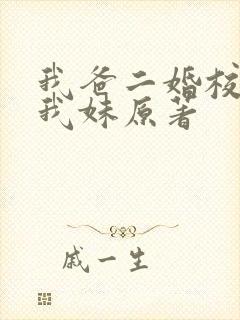 我爸二婚校
我妹原著
戚一生